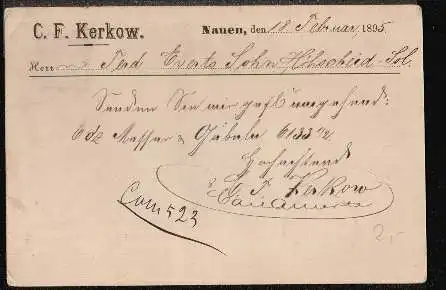 C. F. Kerkow.
Nauen, den 18 Februar 1895
Herrn Ferd Everts Sohn Höhscheid-Sol.
Senden Sie mir gefl umgehend:
6 dz Messer & Gabeln 6133
Hochachtend
C. F. Kerkow
Com 523
2,-